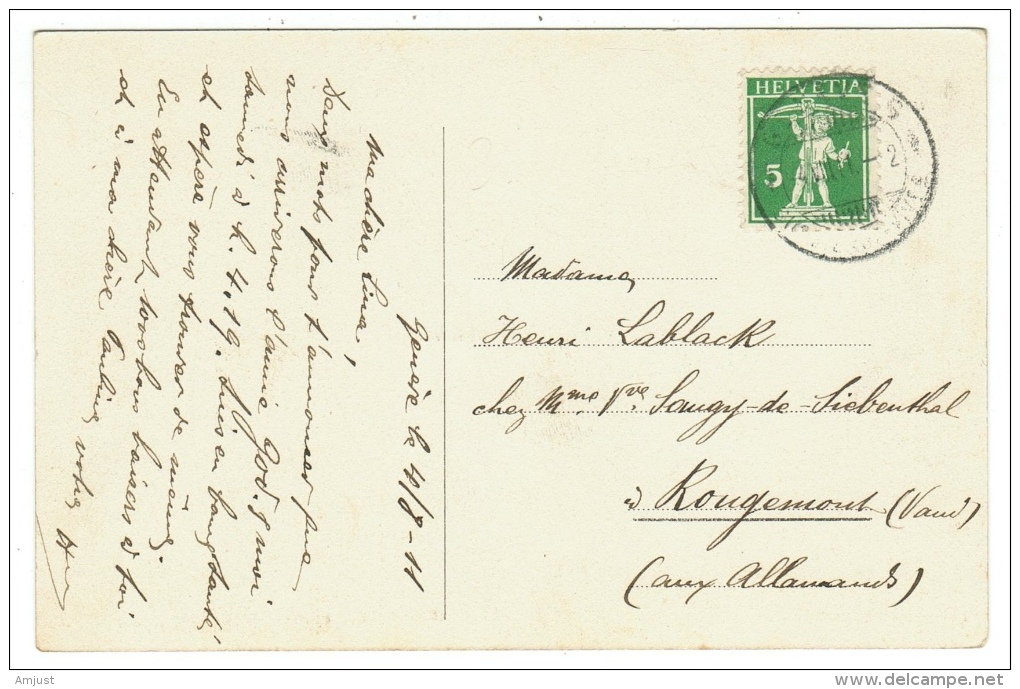 Genève le 4/8-11
Ma chère Lina,
Deux mots pour t'annoncer que
nous arriverons l'amie God. & moi
samedi à h. 4.19. Suis en bonne santé,
et espère vous trouver de même.
En attendant, bons baisers à toi
et à ma chère Pauline, votre
HELVETIA
5
Madame
Henri Lablack
chez Mme. Vve. Saugy-de-Siebenthal
à Rougemont (Vaud)
(aux Allamands)
Amjust
delcampe.net